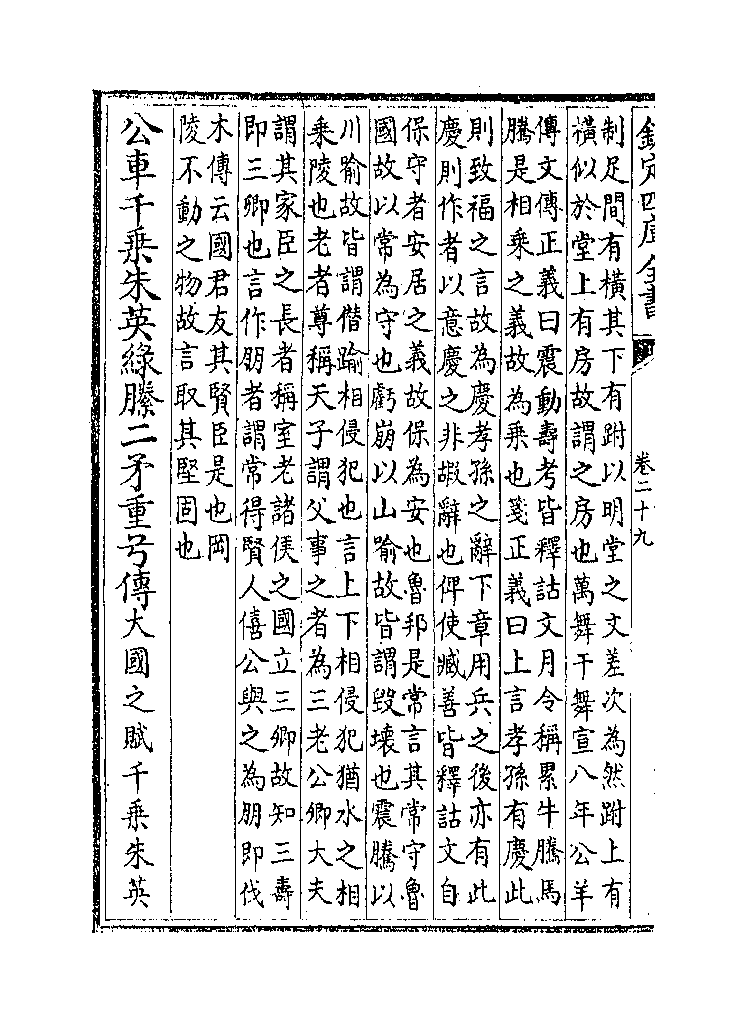 欽定四庫全書
卷二十九
制足間有橫其下有跗以明堂之文差次為然跗上有
橫似於堂上有房故謂之房也萬舞干舞宣八年公羊
傳文傳正義曰震動壽考皆釋詁文月令稱累牛騰馬
騰是相乗之義故為乗也箋正義曰上言孝孫有慶此
則致福之言故為慶孝孫之辭下章用兵之後亦有此
慶則作者以意慶之非嘏辭也俾使臧善皆釋詁文自
保守者安居之義故保為安也魯邦是常言其常守魯
國故以常為守也虧崩以山喻故皆謂毀壊也震騰以
川喻故皆謂僭踰相侵犯也言上下相侵犯猶水之相
乗陵也老者尊稱天子謂父事之者為三老公卿大夫
謂其家臣之長者稱室老諸侯之國立三卿故知三壽
即三卿也言作朋者謂常得賢人僖公與之為朋即伐
木傳云國君友其賢臣是也岡
陵不動之物故言取其堅固也
公車千乗朱英綠縢二矛重弓傳大國之賦千乗朱英